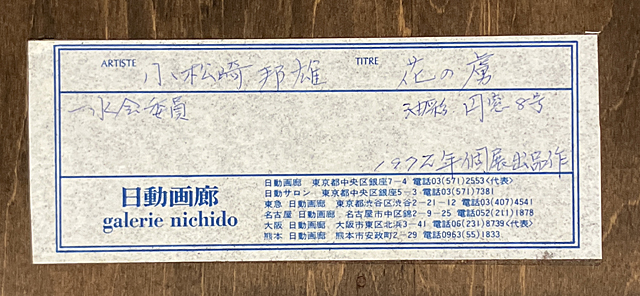 ARTISTE 小松崎邦雄 TITRE 花の虜
一水会委員 油彩 円窓 8号
個展出品作
日動画廊
galerie nichido
日動画廊 東京都中央区銀座7-4 電話03(571)2553<代表>
日動サロン 東京都中央区銀座5-3 電話03(571)7381
東急 日動画廊 東京都渋谷区渋谷2-21-12 電話03(407)4541
名古屋 日動画廊 名古屋市中区錦2-9-25 電話052(211)1878
大阪 日動画廊 大阪市東区北浜3-41 電話06(231)8739<代表>
熊本 日動画廊 熊本市安政町2-29 電話0963(55)1833